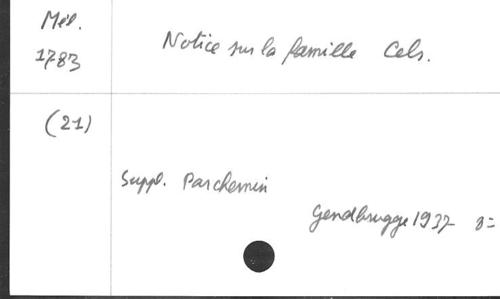 Mél.
1783
Notice sur la famille Cels.
(21)
Suppl. Parchemin
Gendbrugge 1937 8=